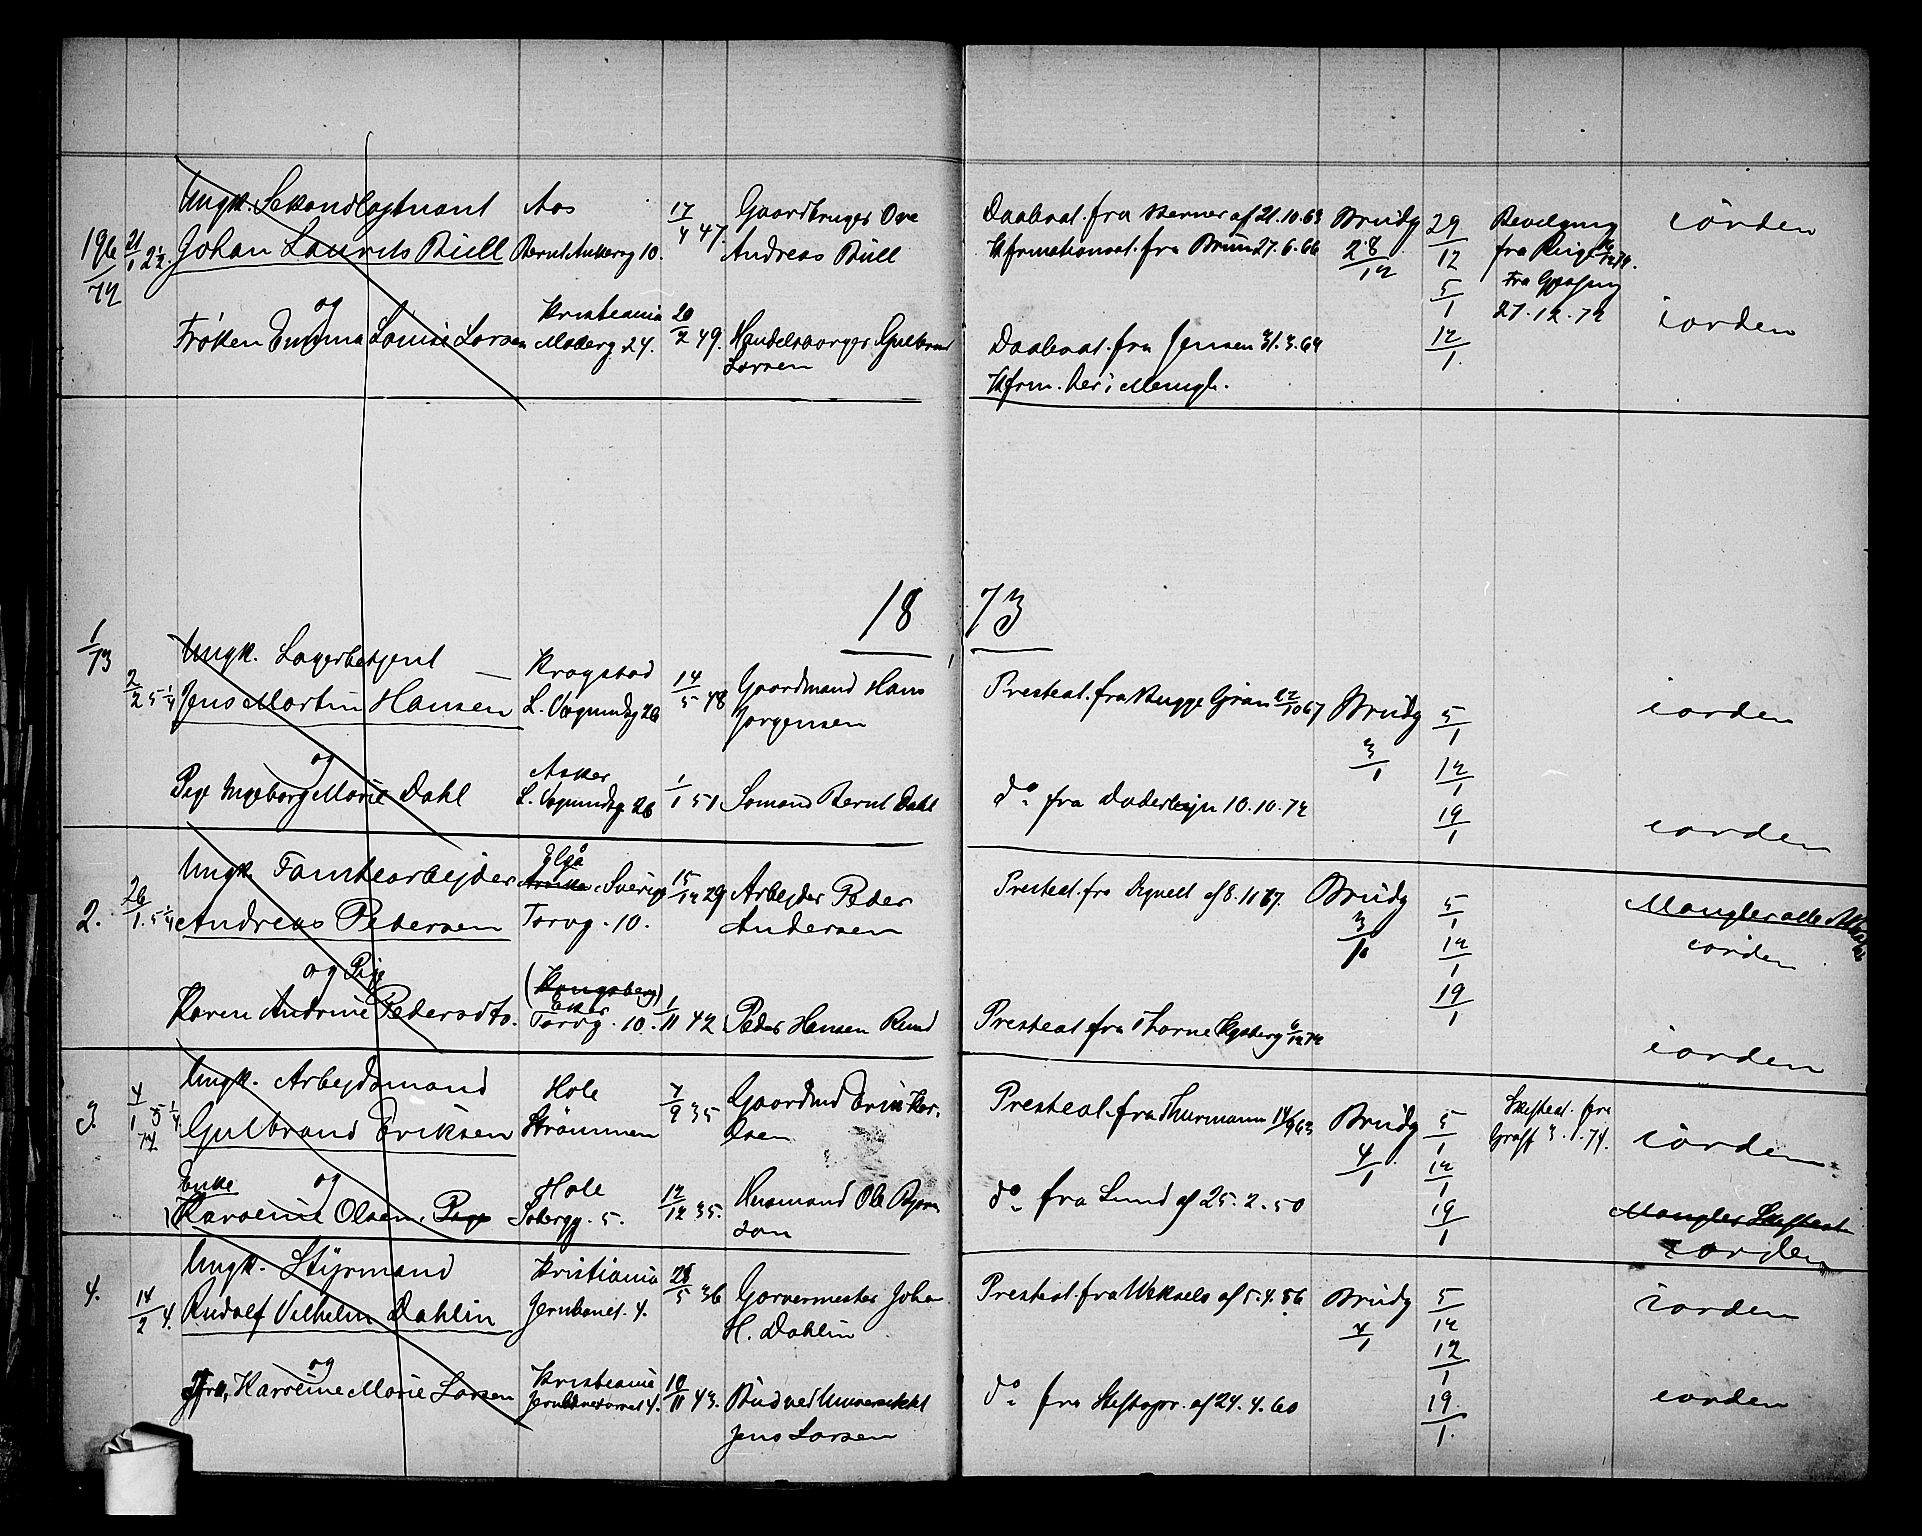 Ungk. Sekondløjtnant Aas 17/4 47. Gaardbruger Ove
196/72 21/1 2½. Johan Laurits Bull Bernt Ankersg 10. Andreas Bull
og Kristiania
Frøken Emma Louise Larsen Møllerg 24. 20/2 49. Handelsborger Gulbrand
Larsen
Daabsat. fra Berner af 21.10.63 Brudg 28/12 29/12 Bevilgning iorden
Kfrmationsat. fra Brun 27.6.66 fra Ringe
5/1 Fra
27.12.72 iorden
Daabsat. fra Jensen 31.3.64 12/1.
Kfrm. her i Menigh.
18 73
1/73 Ungk. Lagerbetjent Krogstad 14/5 48 Gaardmand Hans
2/2 5¼ Jens Martin Hansen L. Vognmdsg 26 Jørgensen
og Asker
Pige Ingeborg Marie Dahl L. Vognmdsg. 26 1/1 51 Sømand Bernt Dahl
Presteat. fra Bugge Gran 22/10 67 Brudg 3/1 5/1 iorden
12/1
do fra Døderlejn 10.10.72 19/1 iorden
Elgå
Ungk. Fabrikarbejder Sverige 15/12 29 Arbejder Peder
2. 26/1. 5¼ Andreas Petersen Torvg. 10. Andersen
og Pige (Kongsberg)
Eker
Karen Andrine Pedersdtr. Torvg. 10. 1/11 42 Peder Hansen Rund
Presteat. fra Agnell af 8.11 67. Brudg 3/1 5/1 Mangler alle
12/1 iorden
19/1
Presteat fra Thorne Kgsberg 6/12 72 iorden
Ungk. Arbejdsmand Hole 7/9 35 Gaardmd Erik Kar-
3. 4/1 5¼ 74 Gulbrand Eriksen Strømmen lsen
Enke og Hole
Karoline Olsen, Pige Sobergg. 5. 12/12 35. Husmand Ole Bjørn
son
Presteat. fra Thurmann 14/9 63 Brudg 4/1 5/1 Skifteat. fra iorden
12/1 Graff 3.1.74.
do fra Lund af 25.2.50 19/1 Mangler Skifteat
iorden
4. Ungk. Styrmand Kristiania 28/5 36 Garvermester Johan
14/2 4. Rudolf Vilhelm Dahlin Jernbanet. 4. H. Dahlin
og Kristiania
Jfr. Karoline Marie Larsen Jernbanetorvet 4. 10/11 43. Bud ved Universitetet
Jens Larsen
Presteat. fra Weksels af 5.4.56 Brudg 4/1 5/12 iorden
12/1
do fra Stiftspr. af 24.4.60 19/1 iorden